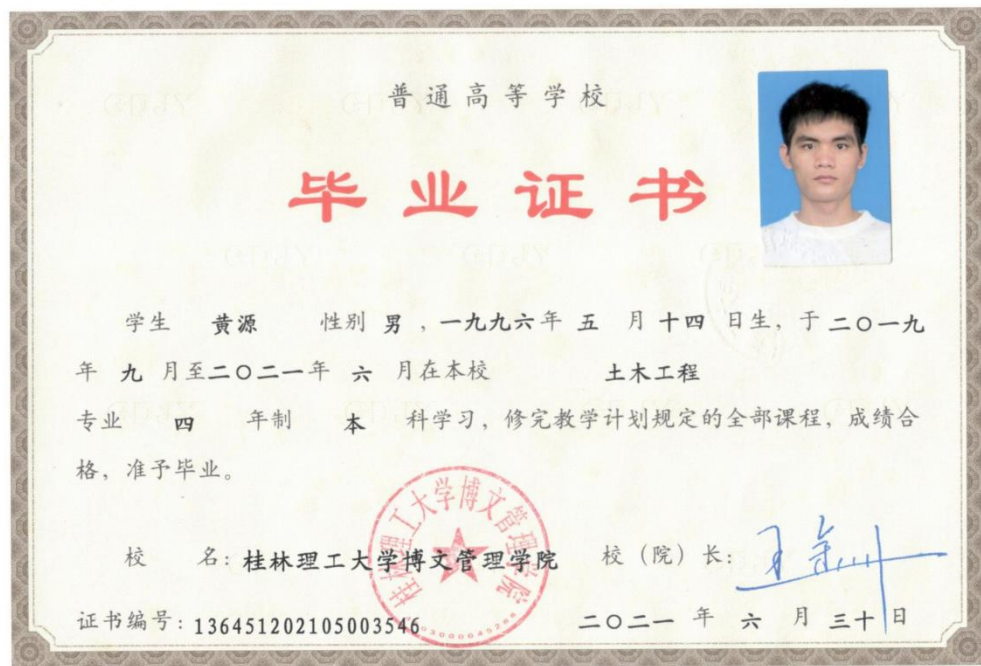 普通高等学校
毕业证书
学生 黄源 性别 男 ，一九九六年 五 月 十四 日生，于 二〇一九
年 九 月至二〇二一年 六 月在本校 土木工程
专业 四 年制 本 科学习，修完教学计划规定的全部课程，成绩合
格，准予毕业。
桂林理工大学博文管理学院
校 名：桂林理工大学博文管理学院 校（院）长：
证书编号：136451202105003546 二〇二一 年 六 月 三十 日